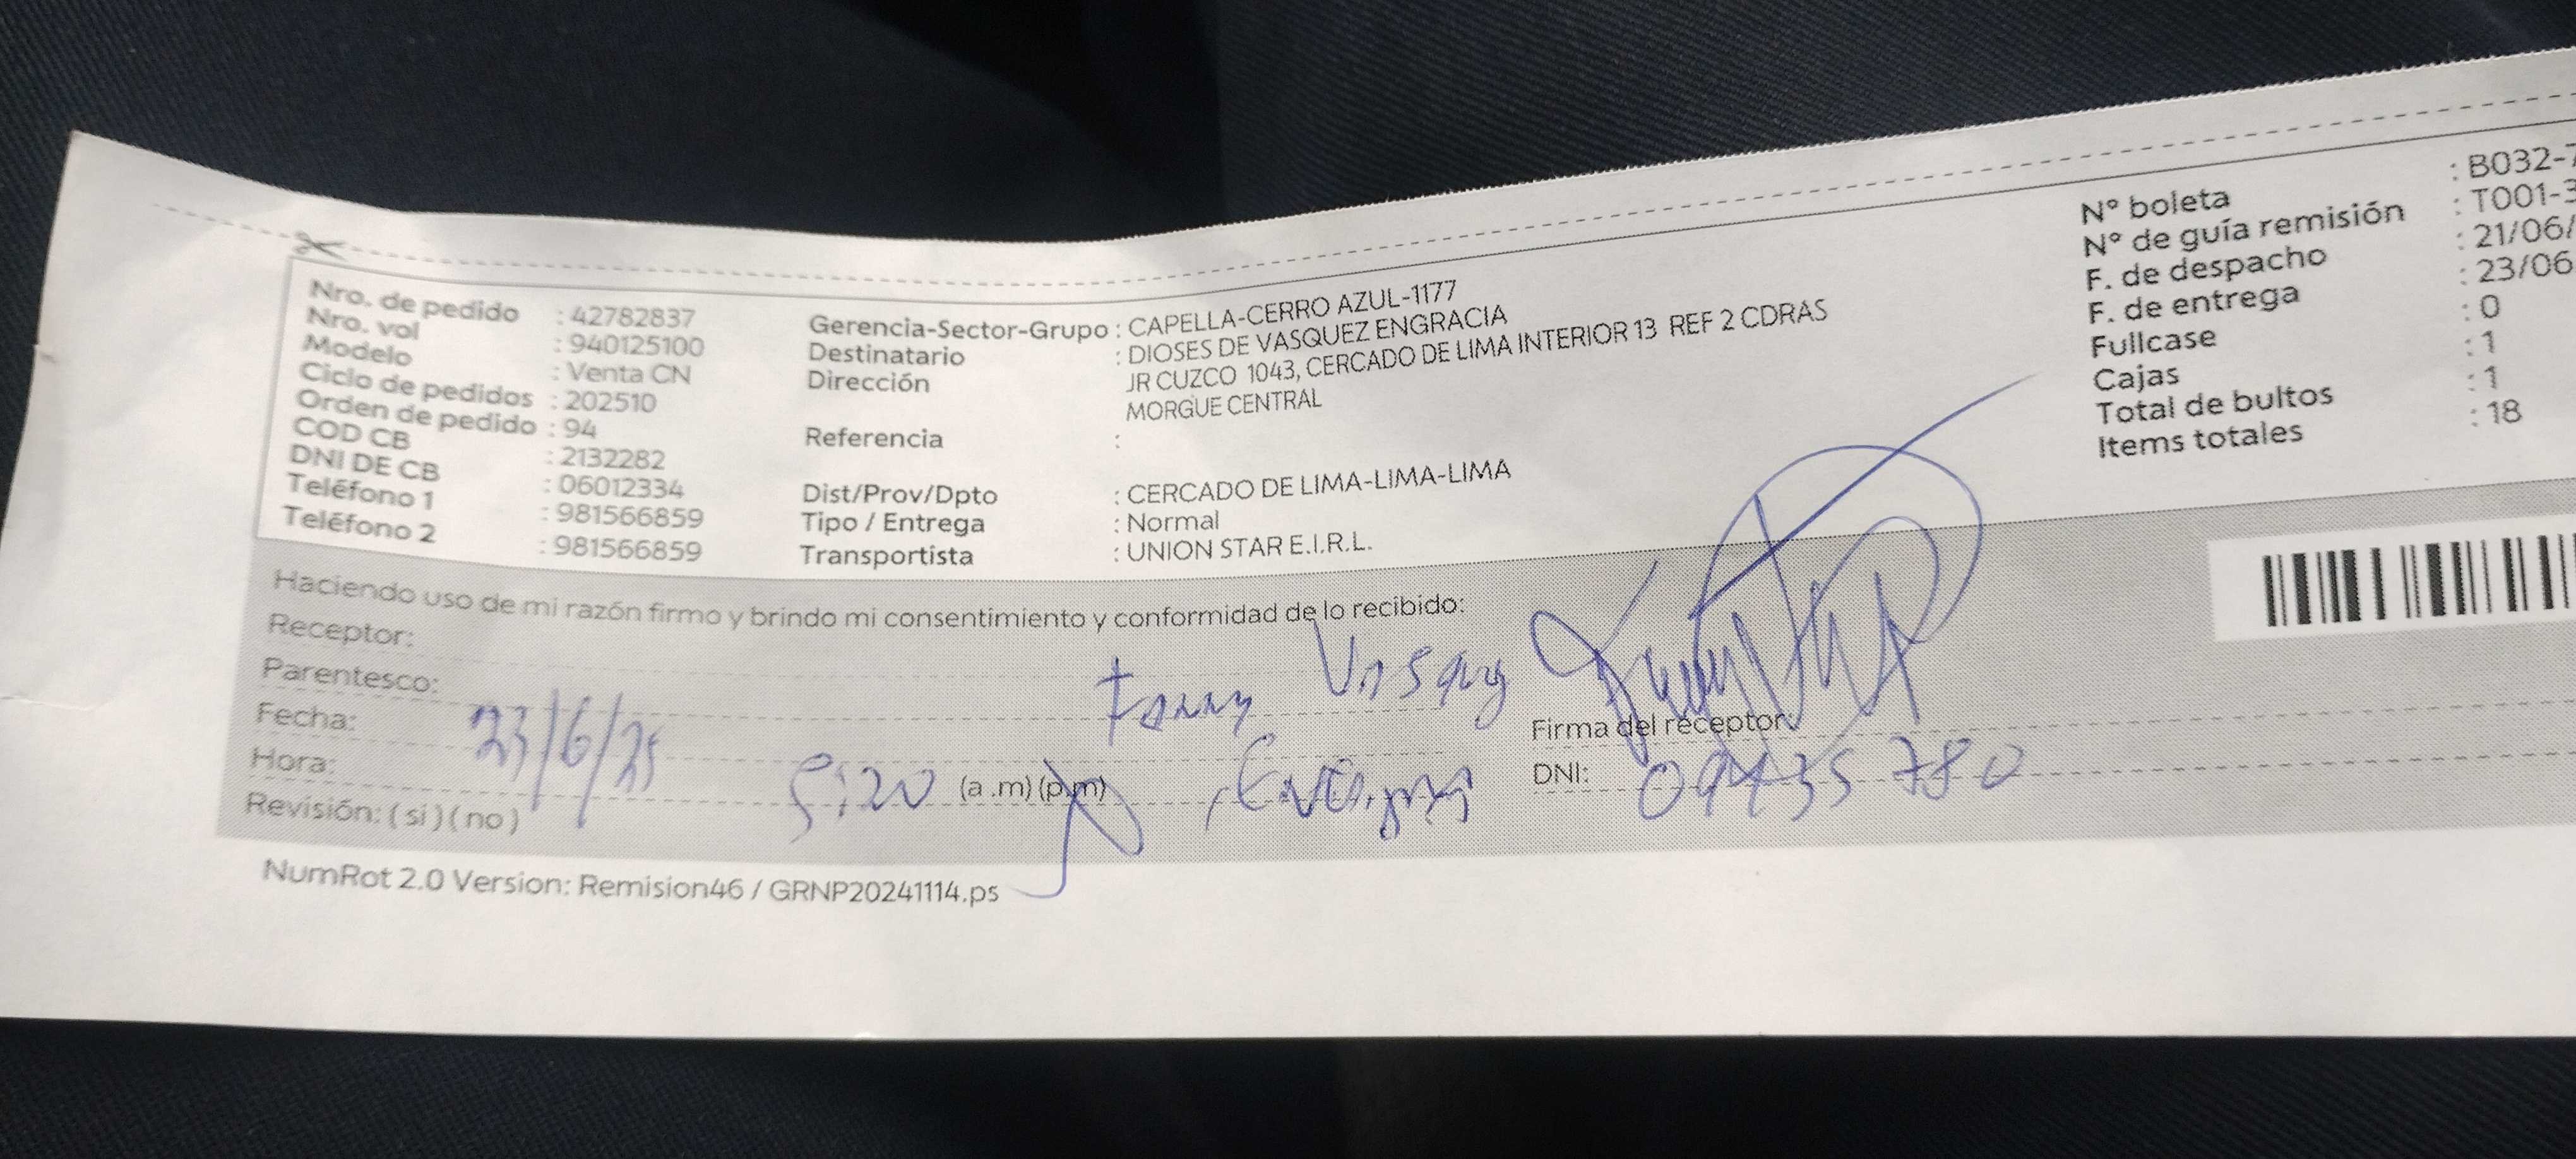 Nro. de pedido : 42782837
Nro. vol : 940125100
Modelo : Venta CN
Ciclo de pedidos : 202510
Orden de pedido : 94
COD CB : 2132282
DNI DE CB : 06012334
Teléfono 1 : 981566859
Teléfono 2 : 981566859
Gerencia-Sector-Grupo : CAPELLA-CERRO AZUL-1177
Destinatario : DIOSES DE VASQUEZ ENGRACIA
Dirección : JR CUZCO 1043, CERCADO DE LIMA INTERIOR 13 REF 2 CDRAS
MORGUE CENTRAL
Referencia :
Dist/Prov/Dpto : CERCADO DE LIMA-LIMA-LIMA
Tipo / Entrega : Normal
Transportista : UNION STAR E.I.R.L.
Nº boleta : B032-7
Nº de guía remisión : T001-3
F. de despacho : 21/06/
F. de entrega : 23/06
Fullcase : 0
Cajas : 1
Total de bultos : 1
Items totales : 18
Haciendo uso de mi razón firmo y brindo mi consentimiento y conformidad de lo recibido:
Receptor: Fanny
Parentesco:
Fecha: 23/6/25
Hora: 5:20 (a .m) (p.m)
Revisión: ( si ) ( no )
Firma del receptor:
DNI: 09435780
NumRot 2.0 Version: Remision46 / GRNP20241114.ps